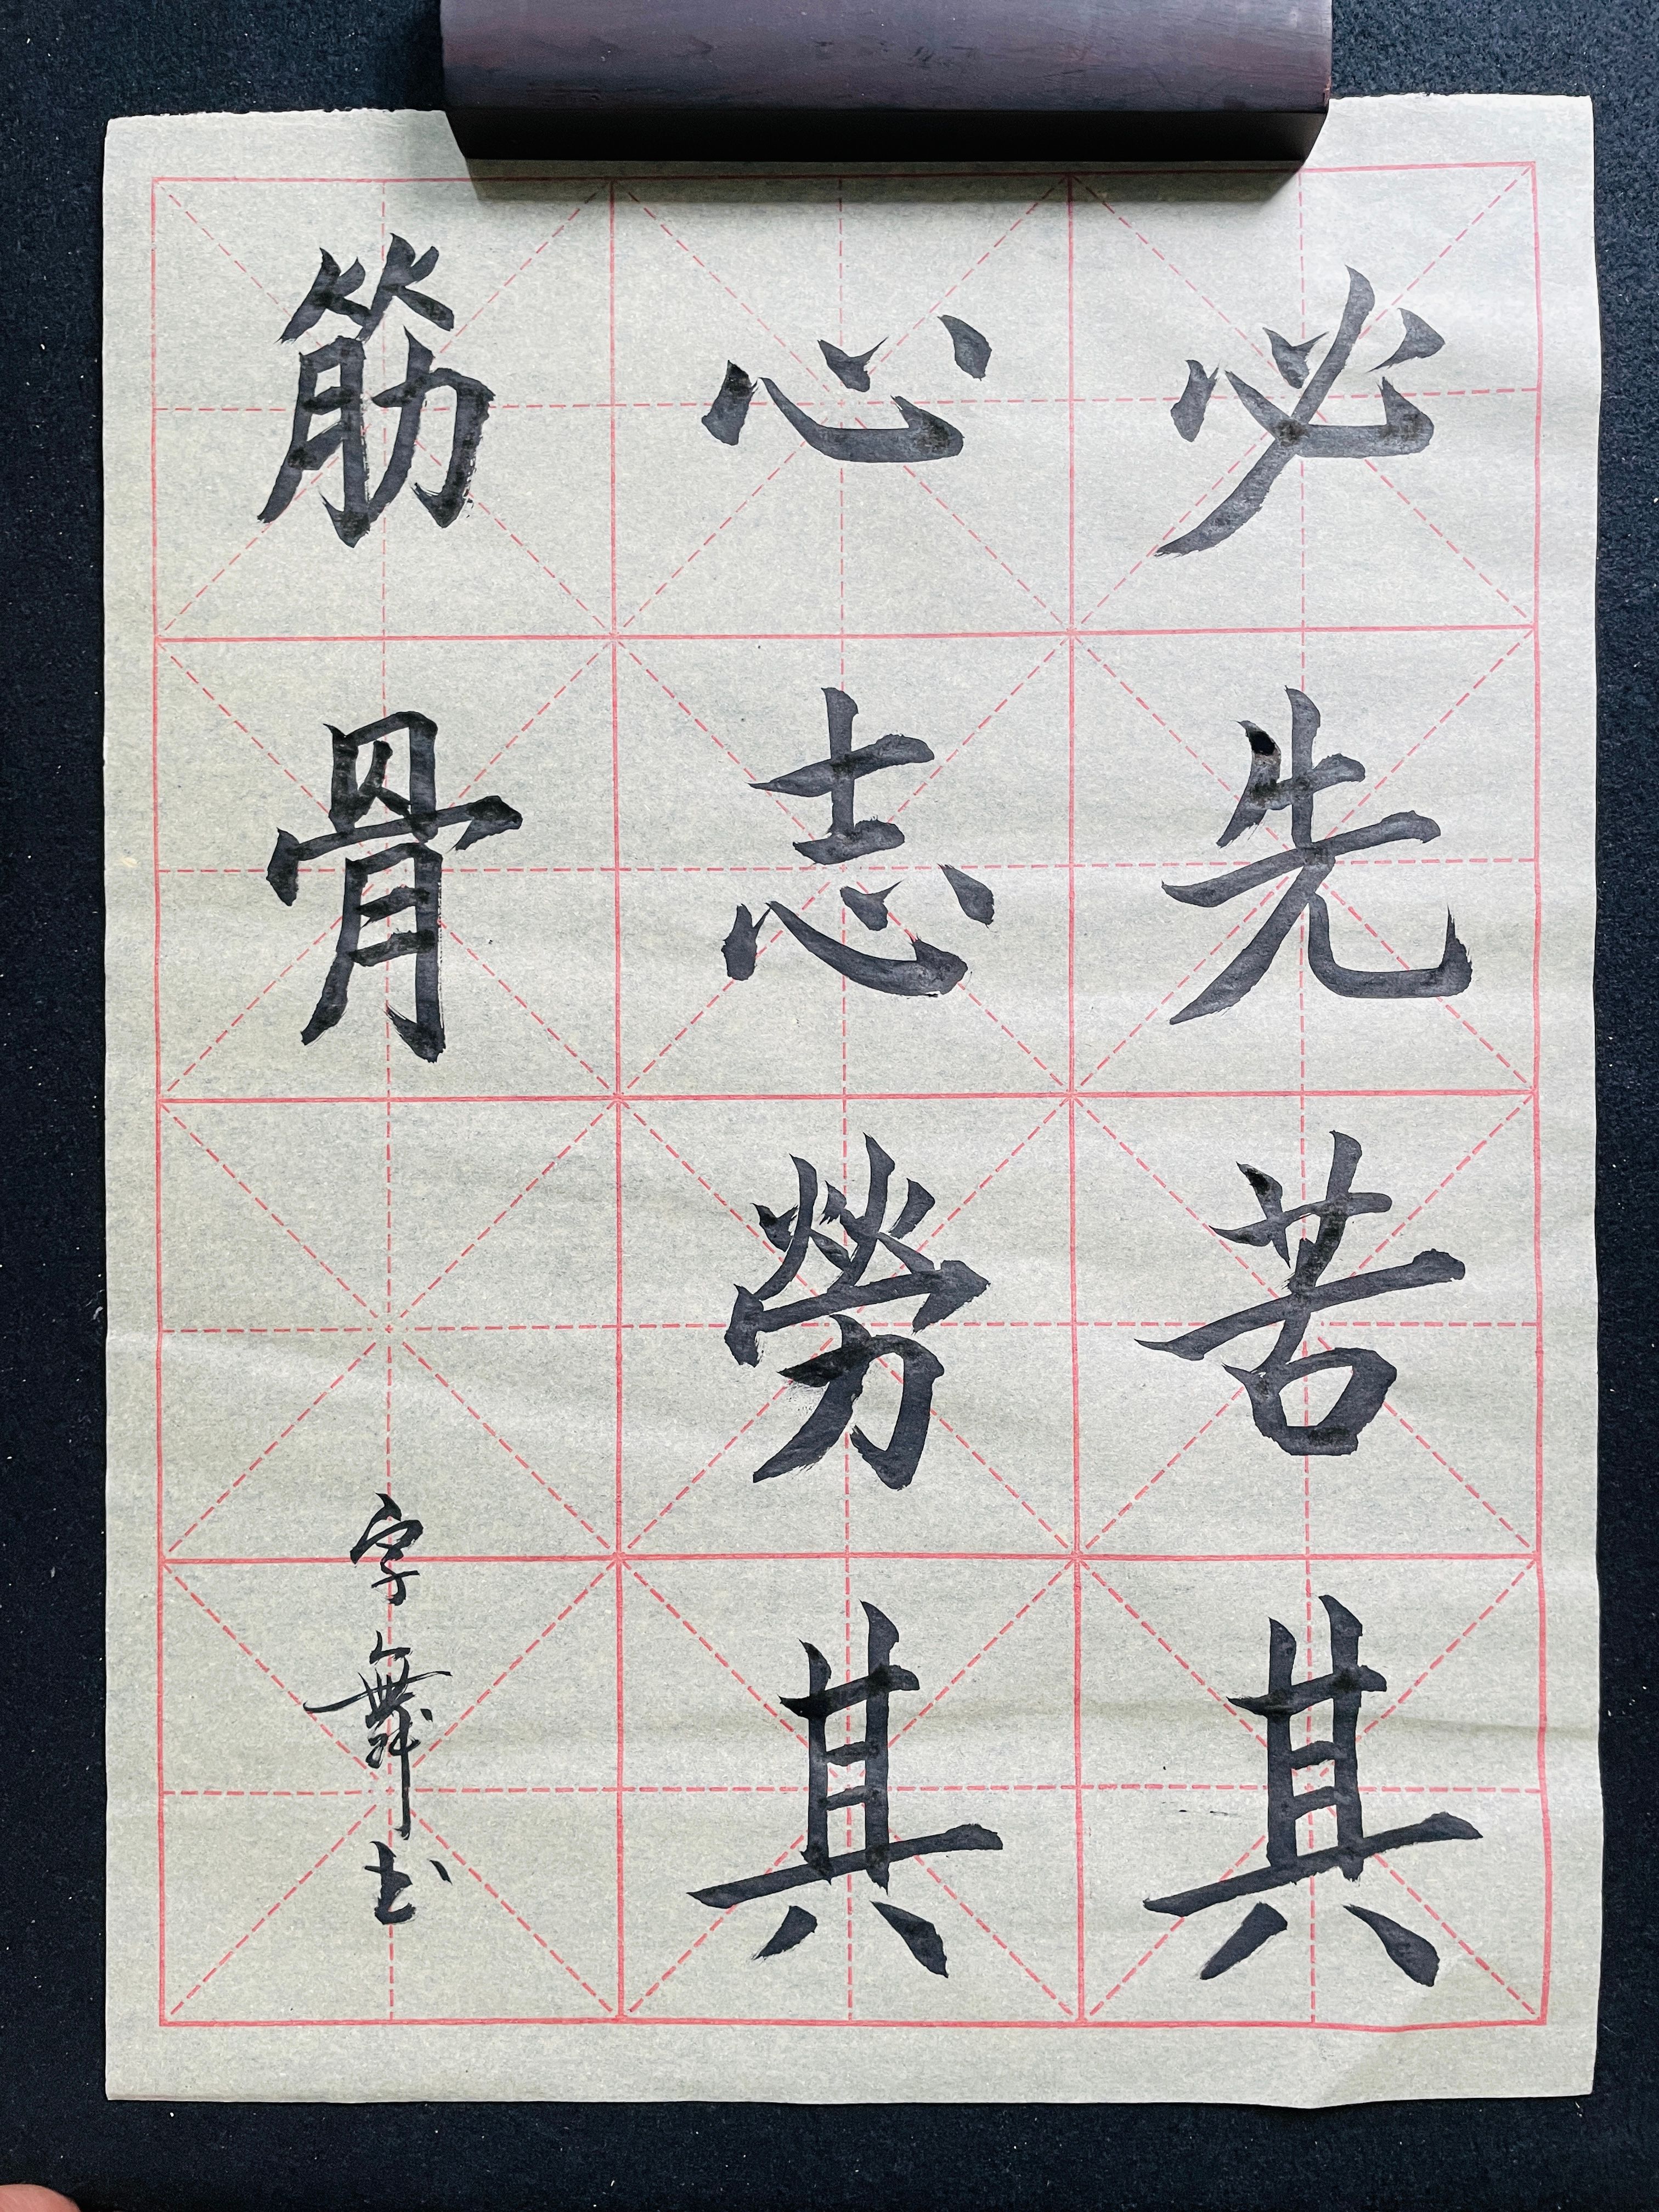 必先苦其
心志勞其
筋骨
字舞书